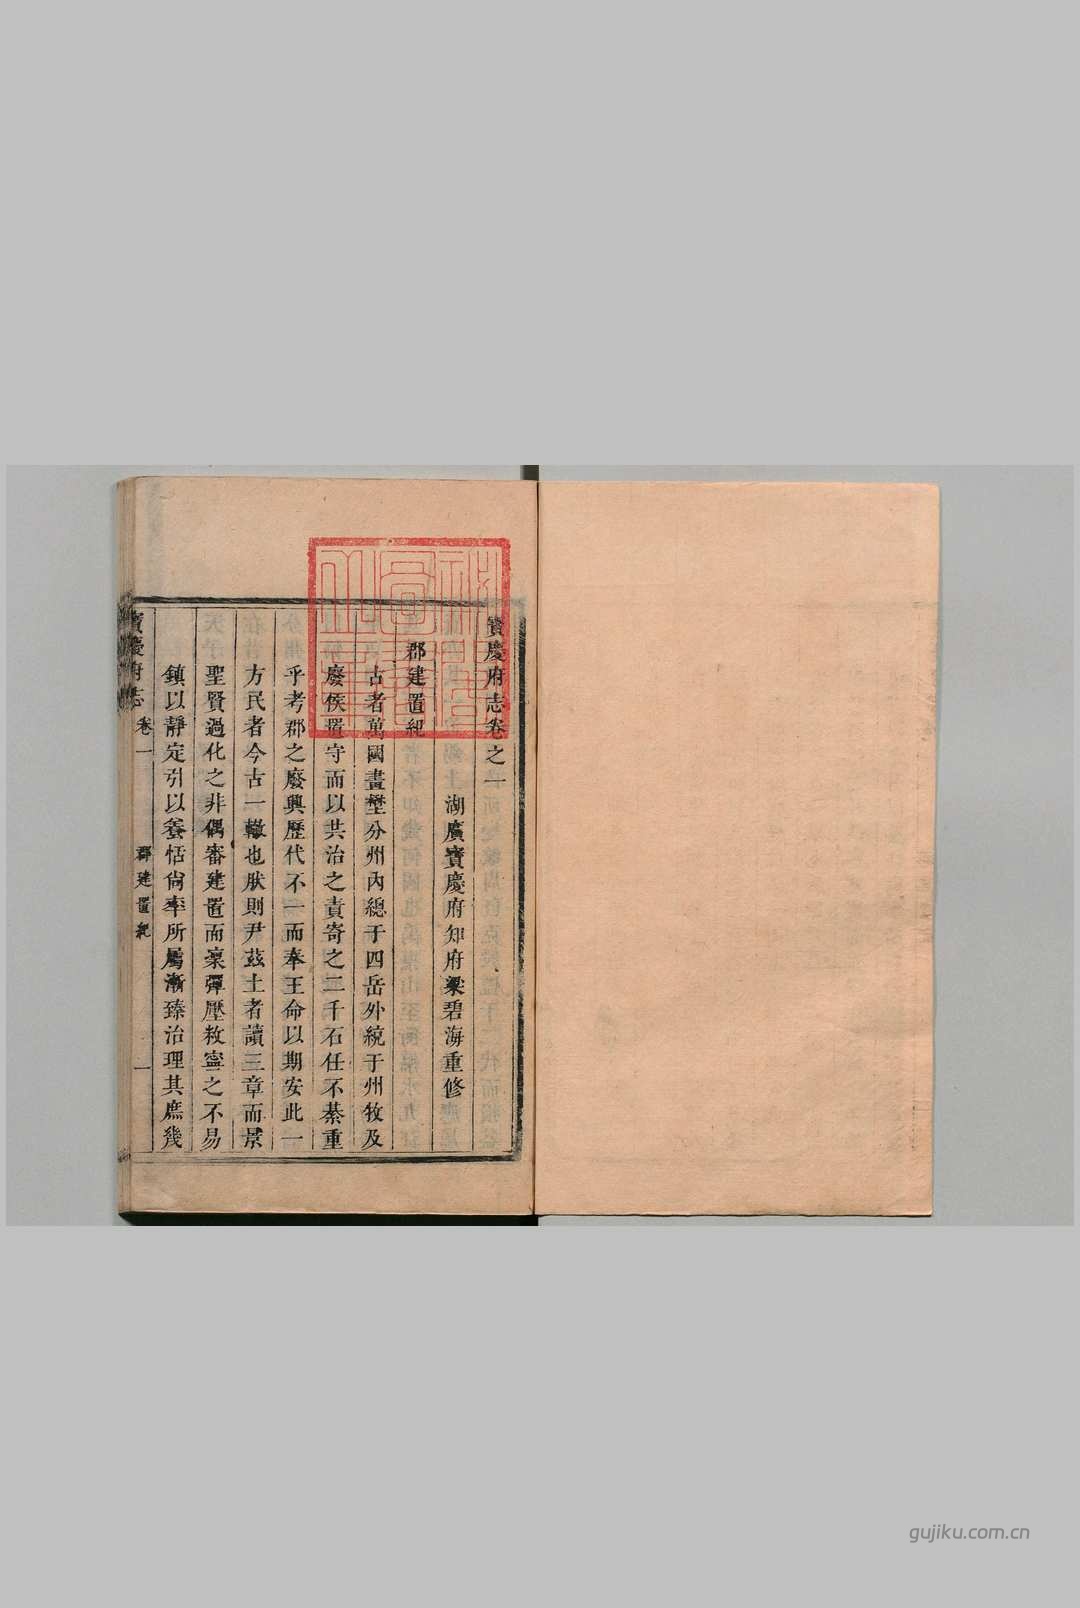 寶慶府志卷之一
湖廣寶慶府知府梁碧海重修
郡建置紀
古者萬國畫壄分州內總于四岳外統于州牧及
廢侯置守而以共治之責寄之二千石任不綦重
乎考郡之廢興歷代不一而奉王命以期安此一
方民者今古一轍也肰則尹茲土者讀三章而景
聖賢過化之非偶審建置而稟彈壓敉寧之不易
鎮以靜定引以養恬尙率所屬漸臻治理其庶幾
寶慶府志
卷一
郡建置紀
一
gujiku.com.cn